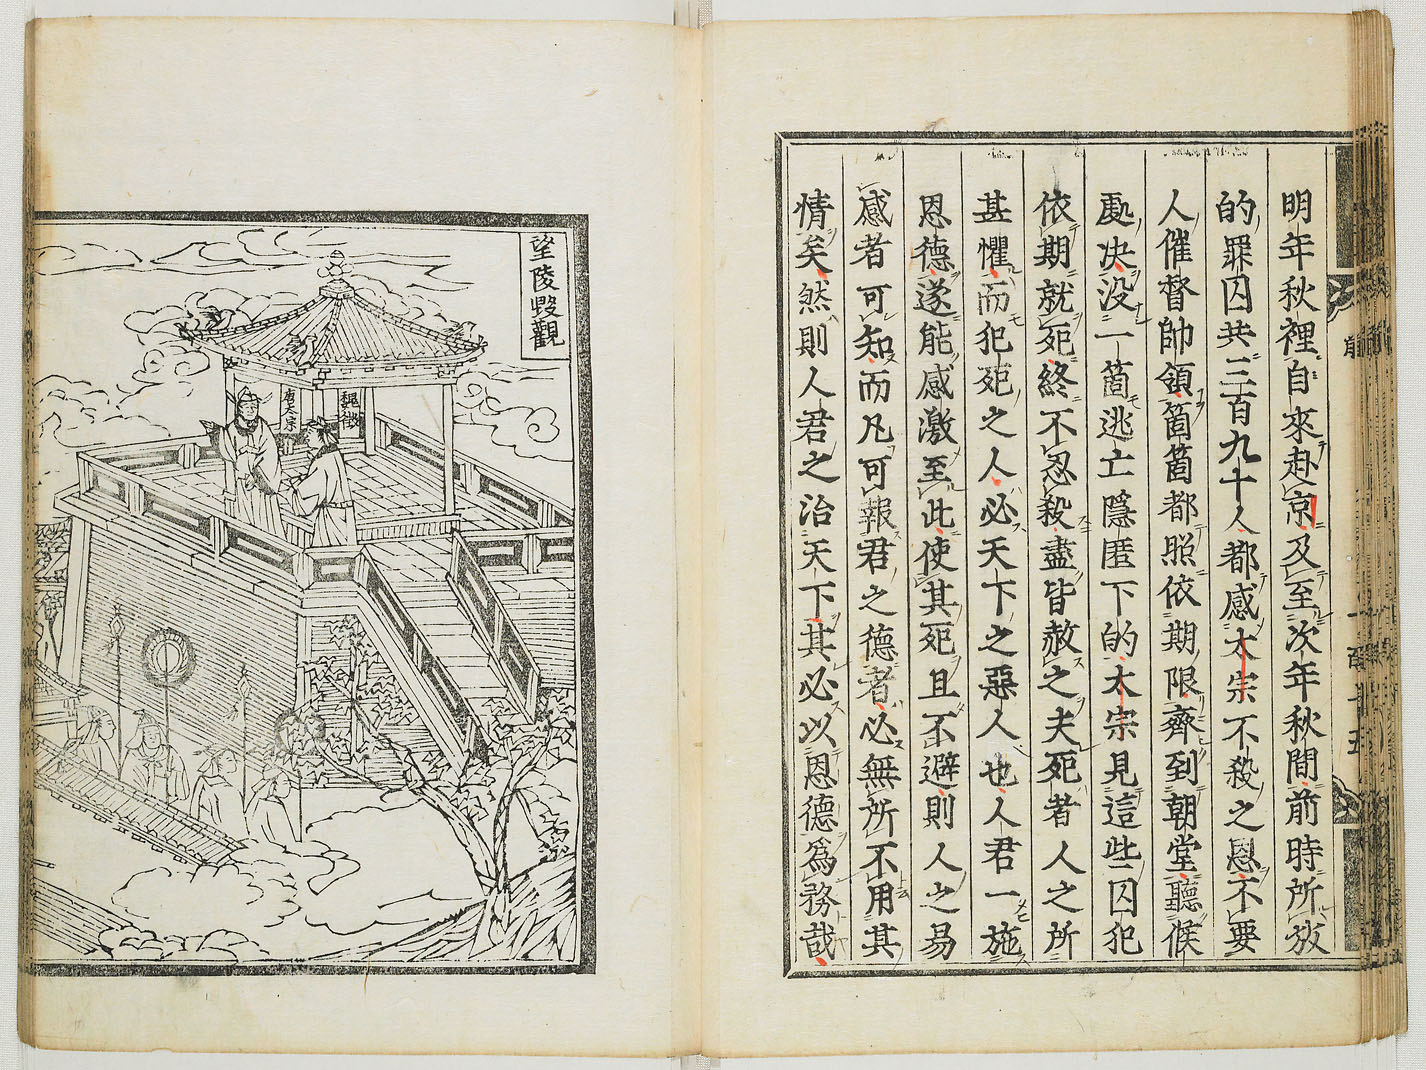 明年秋裡自來赴京及至次年秋間前時所放
的罪囚共三百九十人都感太宗不殺之恩不要
人催督帥領箇箇都照依期限齊到朝堂聽候
處决没一箇逃亡隱匿下的太宗見這些囚犯
依期就死終不忍殺盡皆赦之夫死者人之所
甚懼而犯死之人必天下之惡人也人君一施
恩德遂能感激至此使其死且不避則人之易
感者可知而凡可報君之德者必無所不用其
情矣然則人君之治天下其必以恩德爲務哉
一百十五
望陵毀觀
魏徵
唐太宗